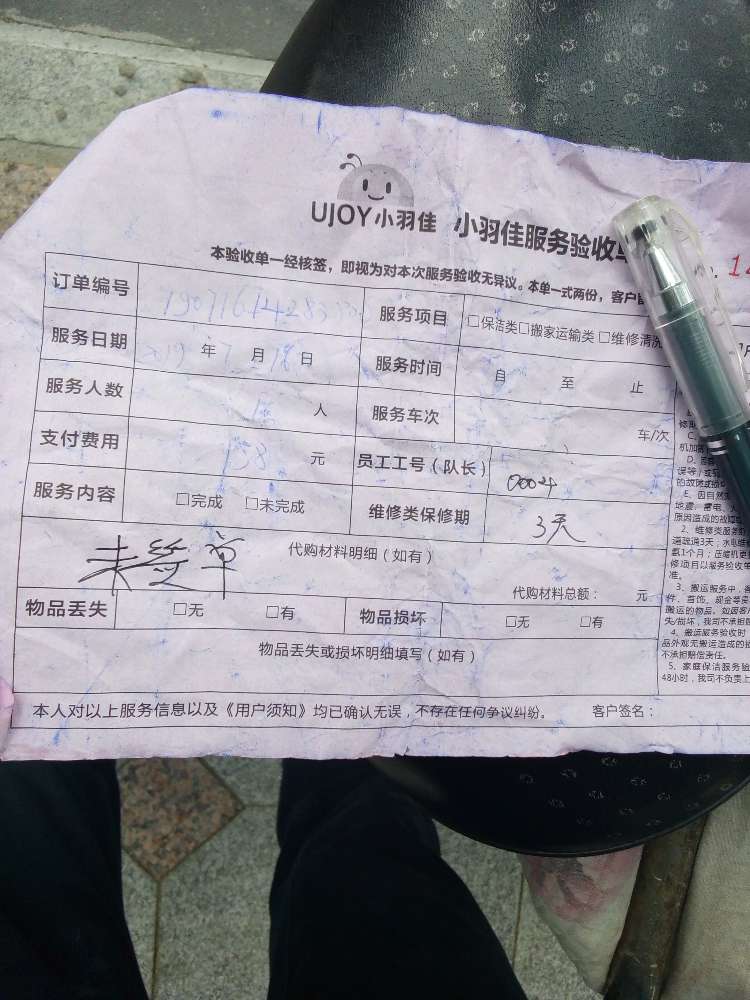 UJOY小羽佳 小羽佳服务验收单
本验收单一经核签，即视为对本次服务验收无异议。本单一式两份，客户
订单编号 服务项目 □保洁类□搬家运输类 □维修清洗
服务日期 2019 年 7 月 日 服务时间 自 至 止
服务人数 人 服务车次 车/次
支付费用 158 元 员工工号（队长） 0004
服务内容 □完成 □未完成 维修类保修期 3天
未签单 代购材料明细（如有）
代购材料总额： 元
物品丢失 □无 □有 物品损坏 □无 □有
物品丢失或损坏明细填写（如有）
本人对以上服务信息以及《用户须知》均已确认无误，不存在任何争议纠纷。 客户签名：
E、因自然
地震、雷电、
原因造成的故障
2、维修类服务
道疏通3天；水电维
氟1个月；压缩机更
修项目以服务验收单
准。
3、搬运服务中，
件、首饰、现金等
搬运的物品。如因客
失/损坏，我司不承担
4、搬运服务验收时
品外观无搬运造成的
不承担赔偿责任。
5、家庭保洁服务验
48小时，我司不负责上